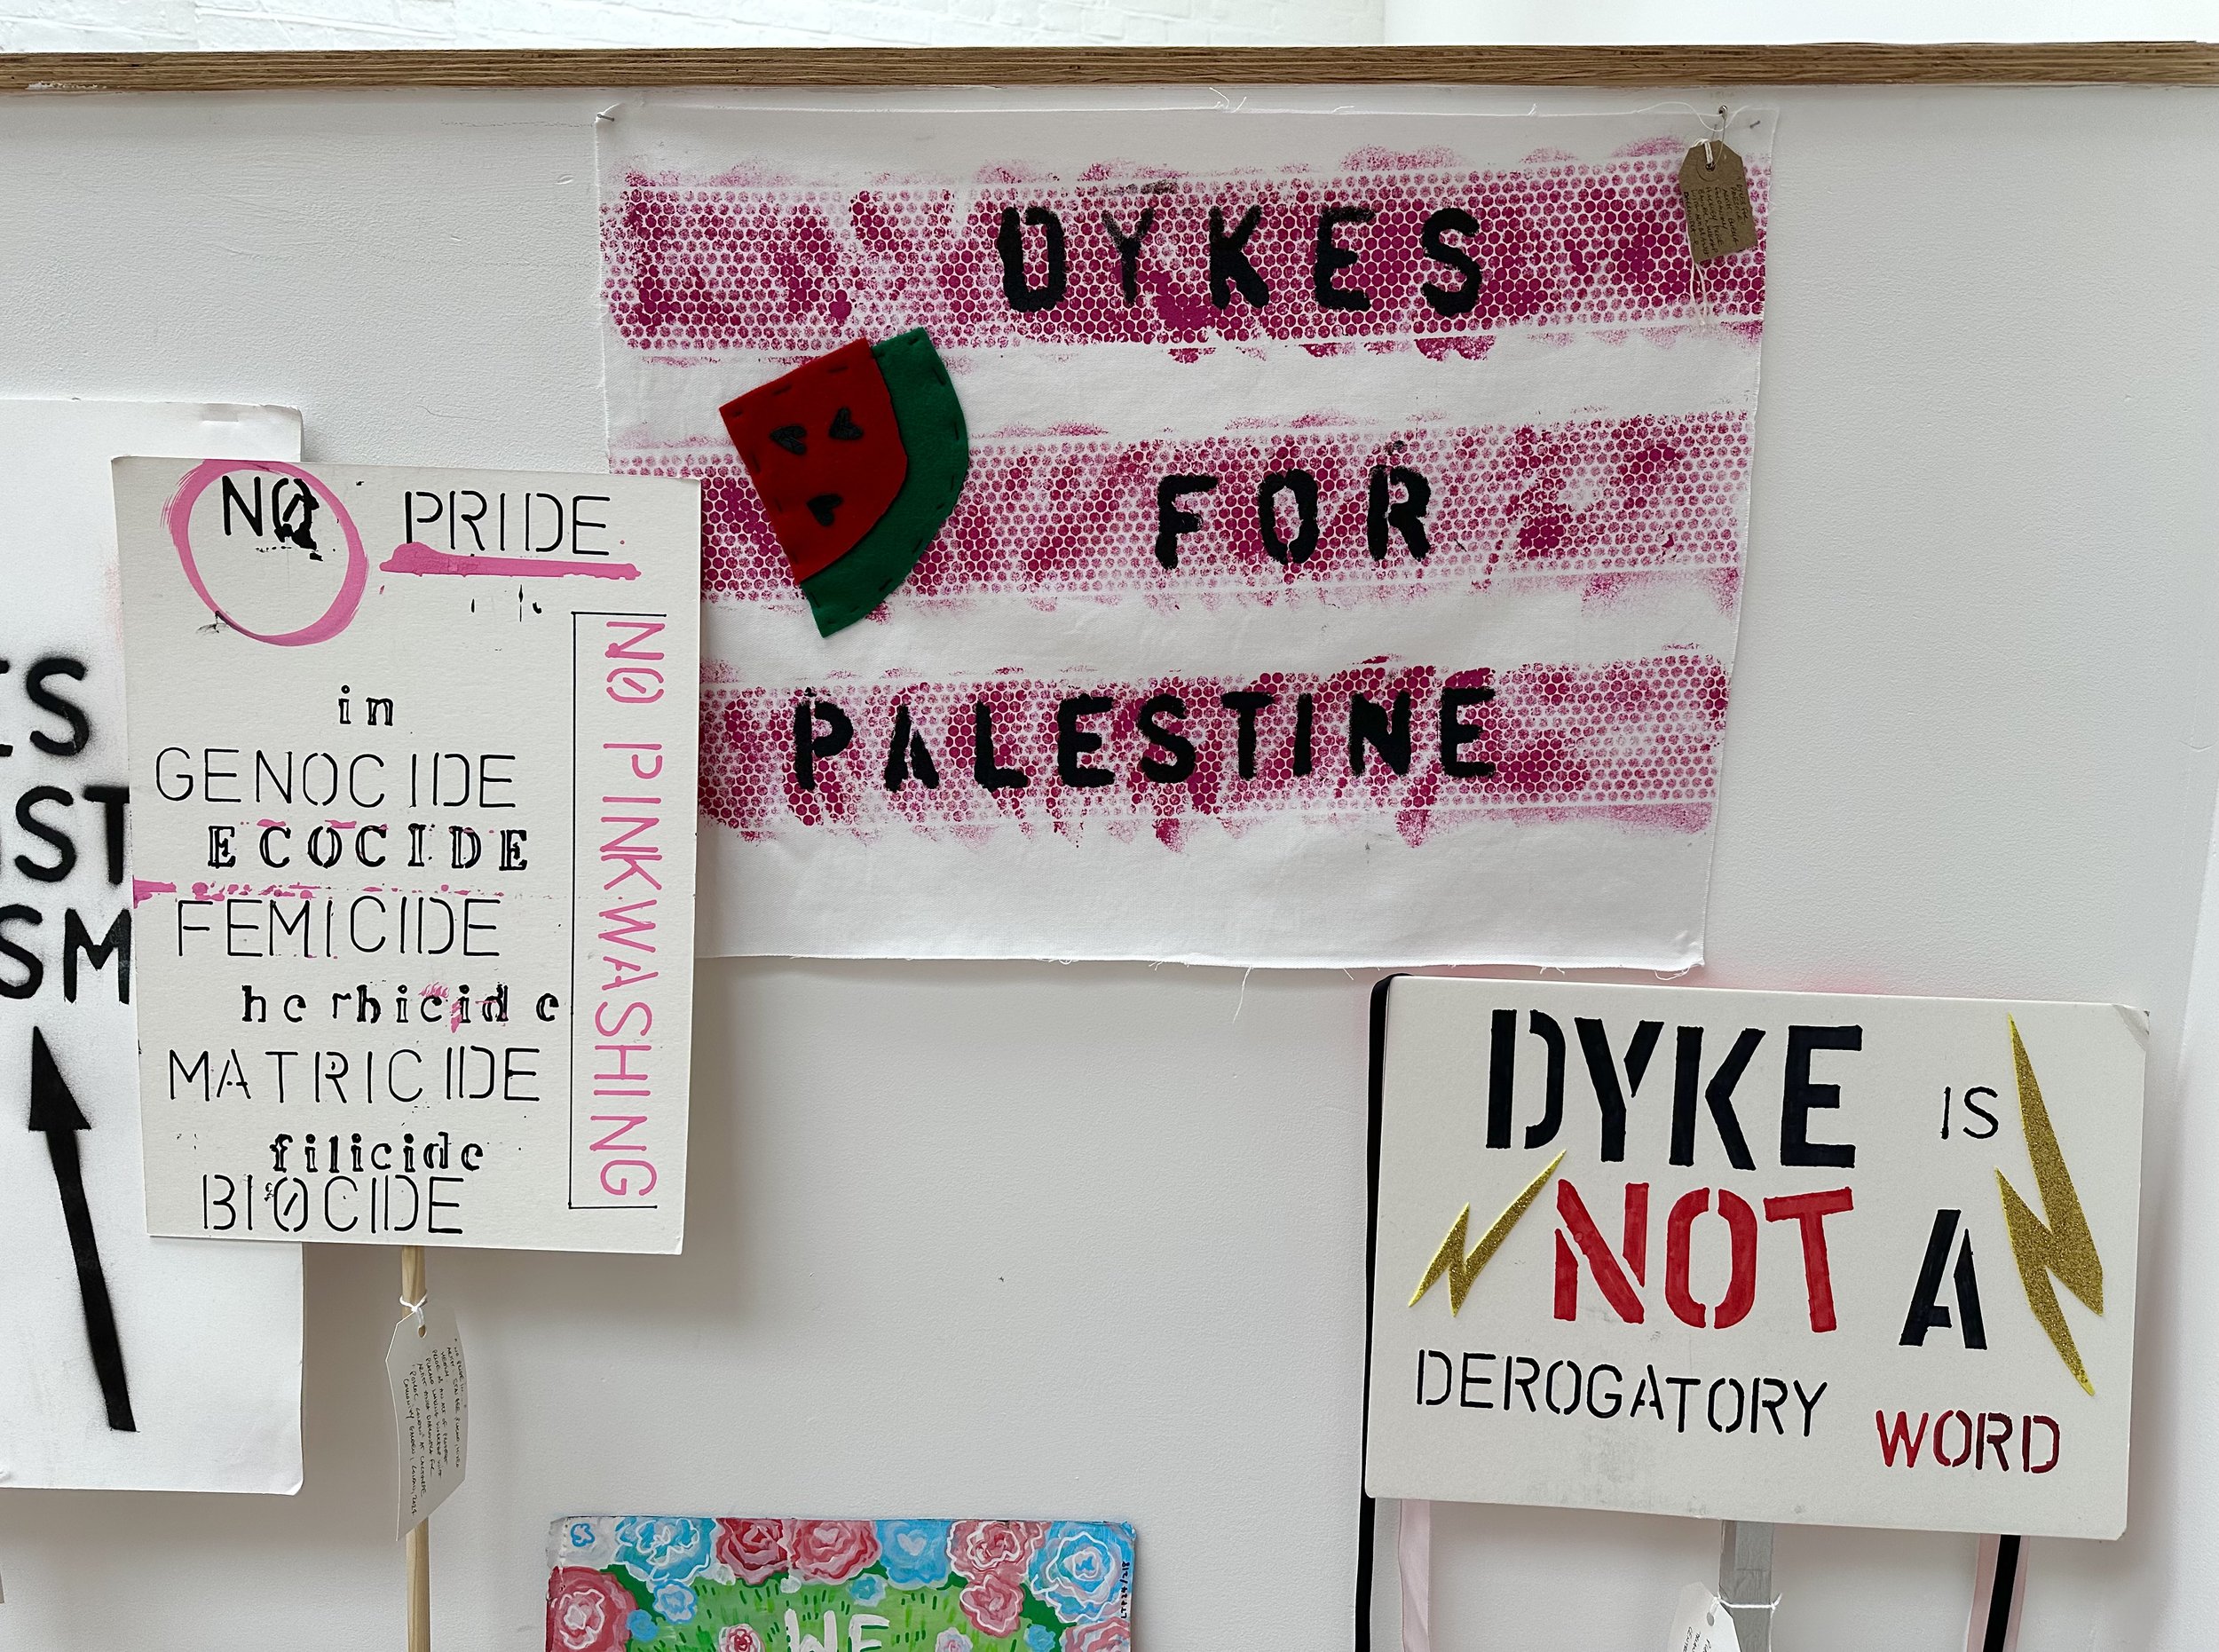 DYKES
FOR
PALESTINE
NO PRIDE
in
GENOCIDE
ECOCIDE
FEMICIDE
herbicide
MATRICIDE
filicide
BIOCIDE
NO PINKWASHING
DYKE IS
NOT A
DEROGATORY WORD
WE
ES
IST
SM